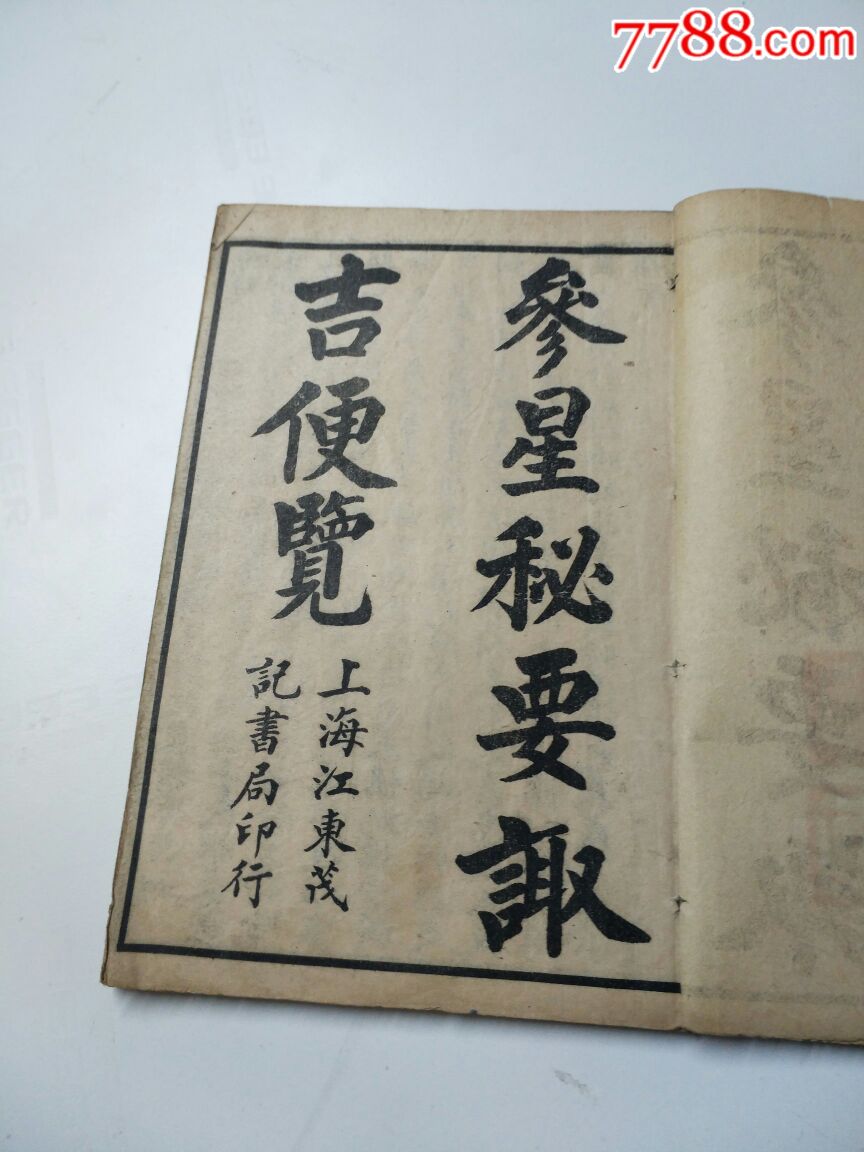 7788.com
參星秘要諏
吉便覽
上海江東茂
記書局印行